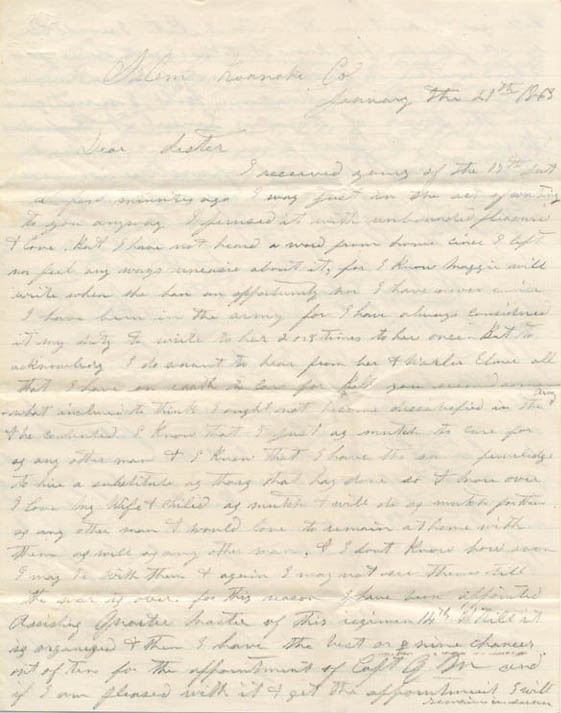 Salem Roanoke Co
January the 21st 1863
Dear Sister
I received yours of the 15th inst
a few minutes ago I was just in the act of writing
to you anyway I perused it with unbounded pleasure
& love. But I have not heard a word from home since I left
nor feel any ways uneasie about it, for I know Maggie will
write when she has an opportunity nor I have never since
I have been in the army for I have always considered
it my duty to write to her 2 or 3 times to her once. But to
acknowledg I do want to hear from her & Elmer all
that I have on earth to care for But you seemed some
what inclined to think I ought not become dissatisfied in the army
& be contented I know that I just as mutch to care for
as any other man & I know that I have the same priviledge
to hire a substitute as those that has done so & more over
I love my Wife & child as mutch & will do as mutch for them
as any other man & would love to remain at home with
them as well as any other man. & I dont know how soon
I may be with them & again I may not see them till
the war is over. for this reason I have been appointed
Assisting Quarter Master of this regimen 14th till it
is organised & then I have the best or 9 nine chances
out of ten for the appointment of Capt Q M and
if I am pleased with it & get the appointment I will
remain in service